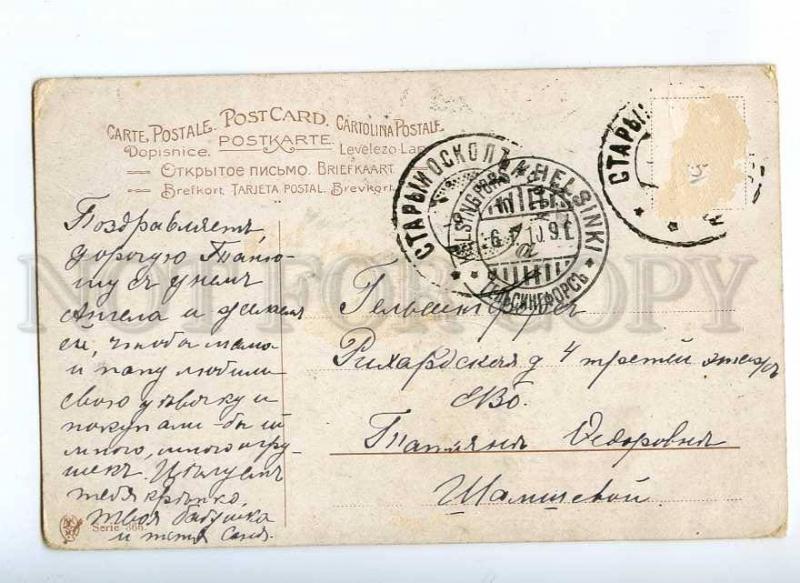 CARTE POSTALE. POST CARD. CARTOLINA POSTALE
Dopisnice. POSTKARTE. Levelezo-Lap
ОТКРЫТОЕ ПИСЬМО. BRIEFKAART
Brefkort. TARJETA POSTAL. Brevkort
СТАРЫЙ ОСКОЛЪ
HELSINKI
HELSINGFORS
ГЕЛЬСИНГФОРСЪ
СТАРЫЙ
Поздравляетъ
дорогую Таню-
шу съ днемъ
Ангела и желаем
ей, чтобы мама
и папа любили
свою девочку и
покупали-бы ей
много, много игру-
шекъ. Целуемъ
тебя крепко,
твоя бабушка
и тетя Саня.
Serie 366
Гельсингфорсъ
Рихардская д 4 третей этажъ
ЕВб.
Татьяне Федоровне
Шамшевой.
NOT FOR COPY